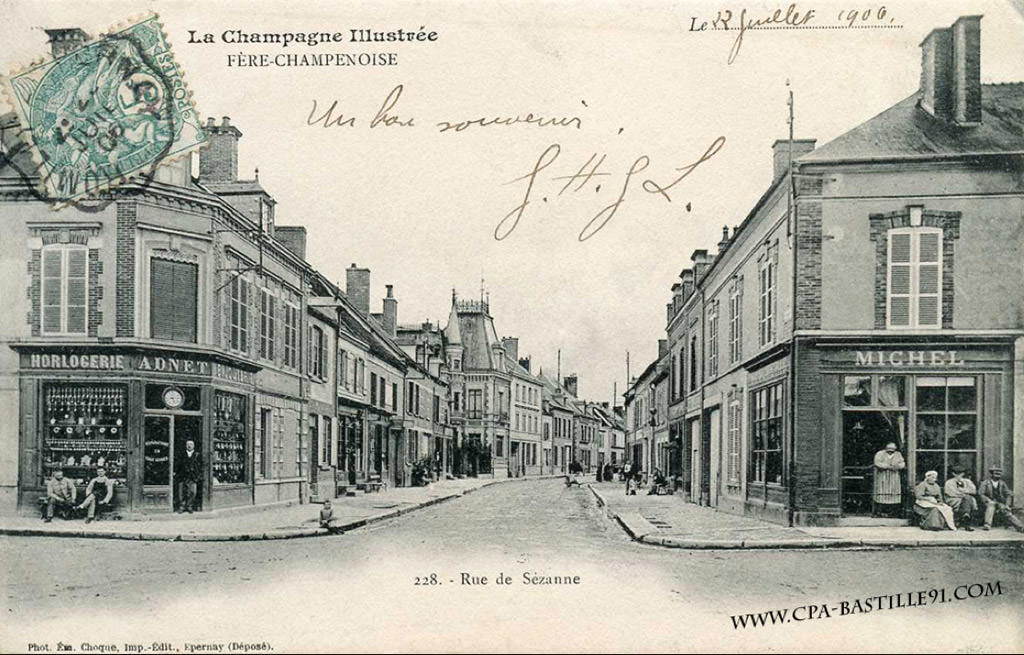 La Champagne Illustrée
FÈRE-CHAMPENOISE
Le Juillet 1906.
Un bon souvenir.
J. H. J L.
POSTES
5
HORLOGERIE ADNET
MICHEL
228. - Rue de Sézanne
WWW.CPA-BASTILLE91.COM
Phot. Ém. Choque, Imp.-Édit., Epernay (Déposé).